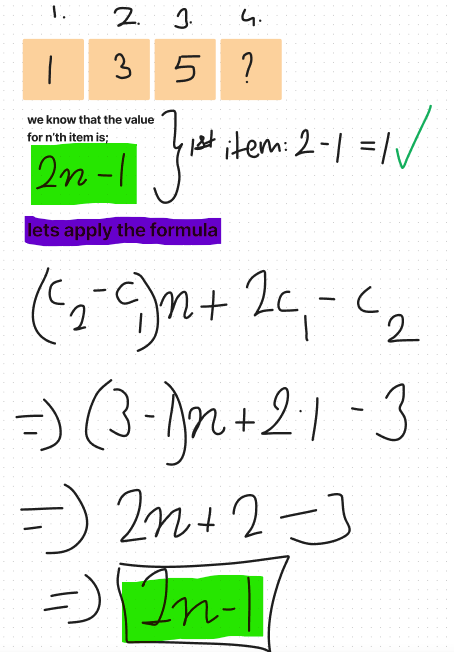 1. 2. 3. 4.
1 3 5 ?
we know that the value
for n'th item is;
2n-1 } 1st item: 2-1 =1 ✓
lets apply the formula
(c₂-c₁)n+ 2c₁ - c₂
=> (3-1)n+2·1 -3
=> 2n+2-3
=> 2n-1